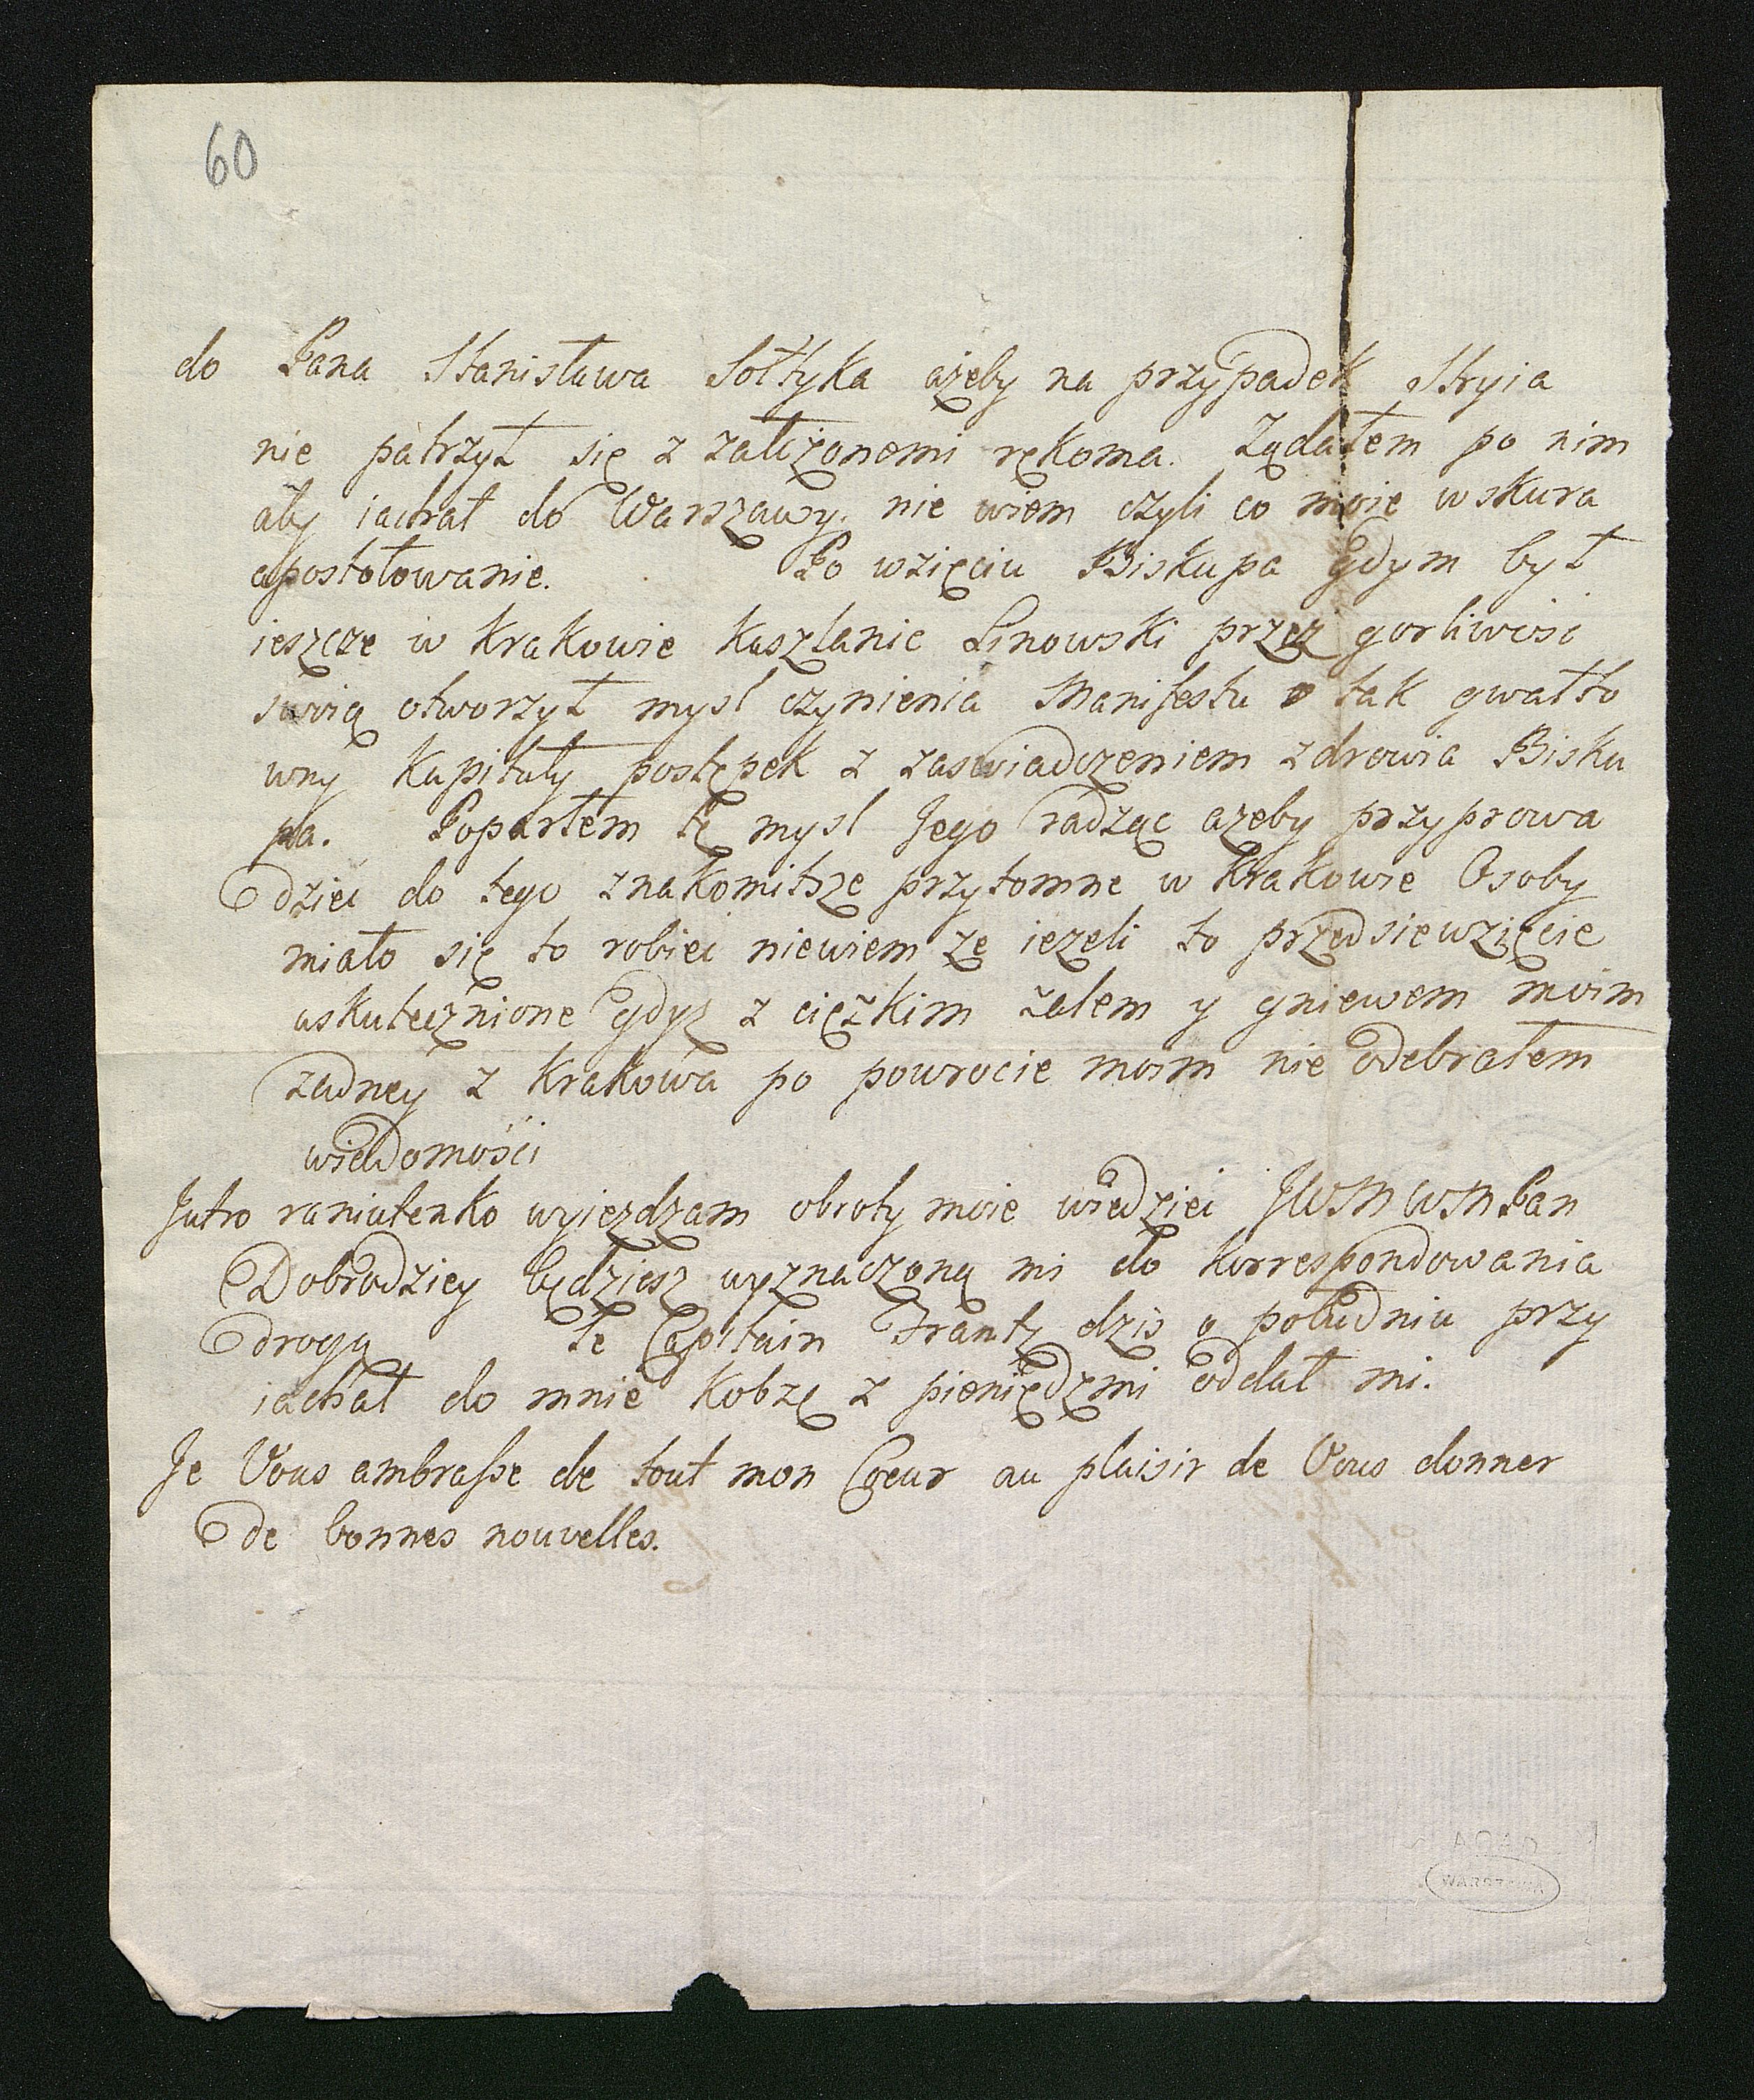 60
do Pana Stanisława Sołtyka ażeby na przypadek Stryia
nie patrzył się z załiżonemi rękoma. Ządałem po nim
aby iachał do Warszawy. nie wiem czyli co moie wskura
apostołowanie. Po wzięciu Biskupa gdym był
ieszcze w Krakowie Kasztanic Linowski przez gorliwość
swoią otworzył mysl czynienia Manifestu o tak gwałto
wny Kapituły postępek z zaswiadczeniem zdrowia Bisku
pa. Poparłem tę mysl Jego radząc azeby przyprowa
dziei do tego znakomitsze przytomne w Krakowie Osoby
miało się to robiei niewiem ze iezeli to przedsiewzięcie
uskutecznione gdyz z cięzkim zalem y gniewem moim
zadney z Krakowa po powrocie moim nie odebrałem
wiedomości
Jutro raniutenko wyiezdzam obroty moie wiedziei JWM WM Pan
Dobrodziey będziesz wyznaczoną mi do korrespondowania
drogą Le Capitain Frantz dzis o południu przy
iachał do mnie Kobzę z pieniędzmi oddał mi.
Je Vous ambrasse de tout mon Coeur au plaisir de Vous donner
de bonnes nouvelles.
AGAD
WARSZAWA